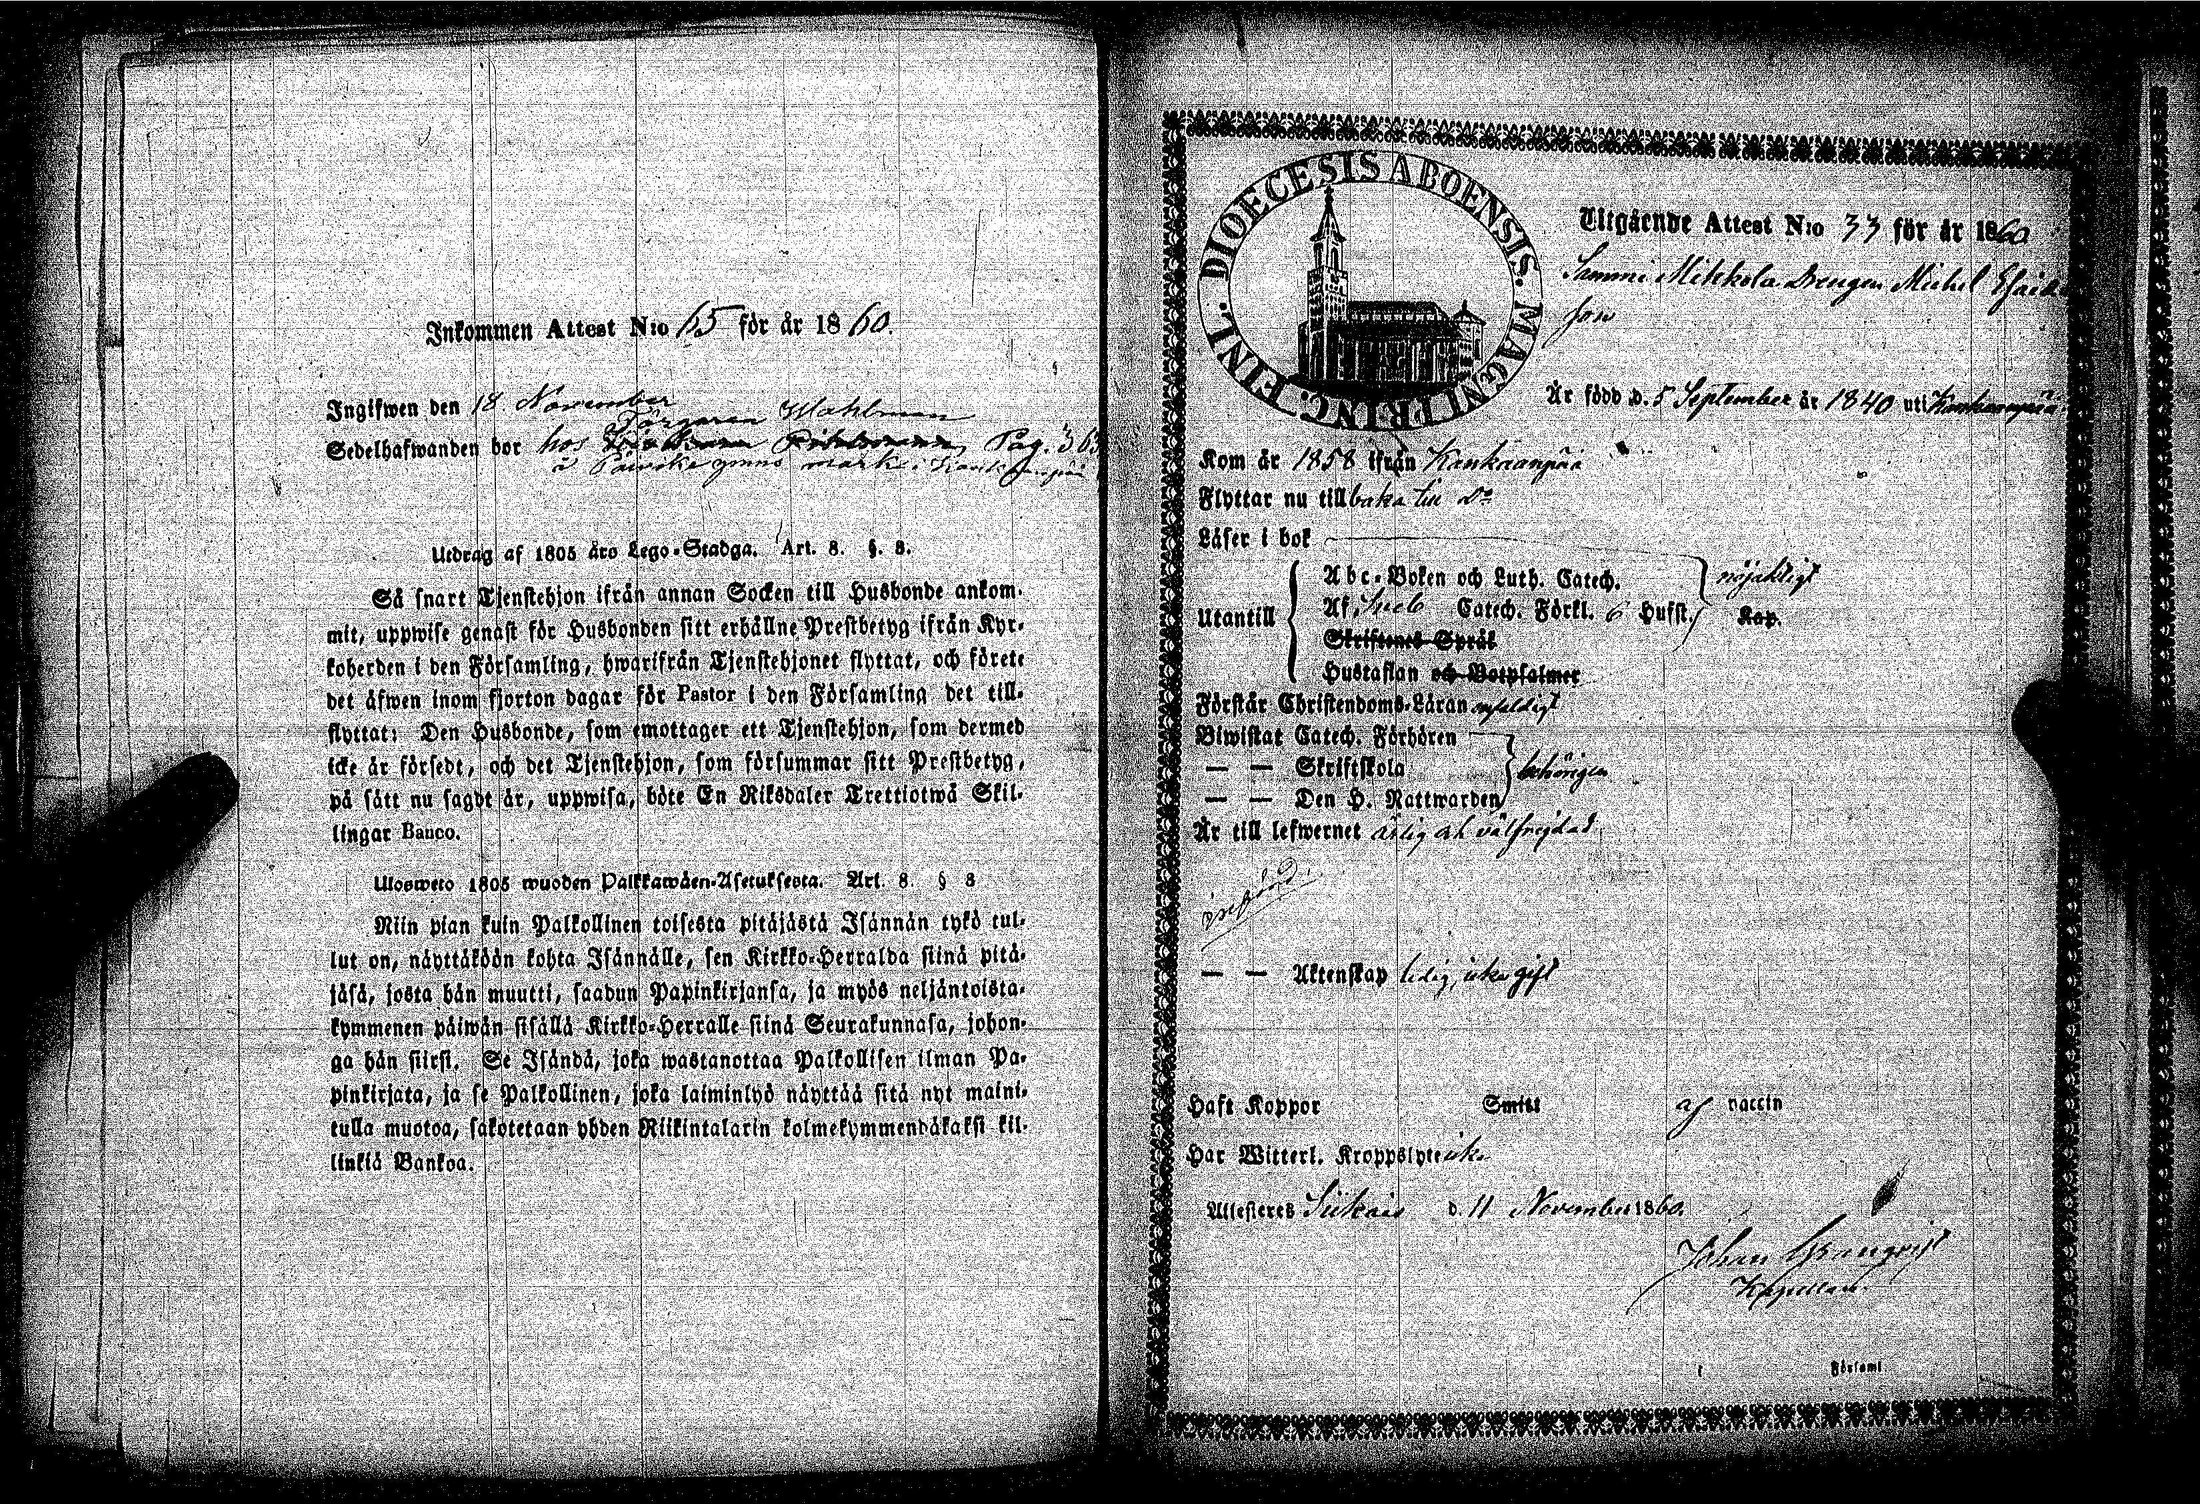 Inkommen Attest N:o 65 för år 1860.
Ingifwen den 18 November
Färgaren Wahlman
Sedelhafwanden bor hos Pag. 363
å mark i Kankaanpää
Utdrag af 1805 års Lego-Stadga. Art. 8. §. 8.
Så snart Tjenstehjon ifrån annan Socken till Husbonde ankom-
mit, uppwise genast för Husbonden sitt erhållne Prestbetyg ifrån Kyr-
koherden i den Församling, hwarifrån Tjenstehjonet flyttat, och förete
det äfwen inom fjorton dagar för Pastor i den Församling det till-
flyttat: Den Husbonde, som emottager ett Tjenstehjon, som dermed
icke är försedt, och det Tjenstehjon, som försummar sitt Prestbetyg,
på sätt nu sagdt är, uppwisa, böte En Riksdaler Trettiotwå Skil-
lingar Banco.
Ulosweto 1805 wuoden Palkkawäen-Asetuksesta. Art. 8. § 8
Niin pian kuin Palkollinen toisesta pitäjästä Isännän tykö tul-
lut on, näyttäköön kohta Isännälle, sen Kirkko-Herralda siinä pitä-
jäsä, josta hän muutti, saadun Papinkirjansa, ja myös neljäntoista-
kymmenen päiwän sisällä Kirkko-Herralle siinä Seurakunnasa, johon-
ga hän siirsi. Se Isändä, joka wastanottaa Palkollisen ilman Pa-
pinkirjata, ja se Palkollinen, joka laiminlyö näyttää sitä nyt maini-
tulla muotoa, sakotetaan yhden Riikintalarin kolmekymmendäkaksi kil-
linkiä Bankoa.
DIOECESIS ABOENSIS. MAGNI PRINC. FINL.
Utgående Attest N:o 33 för år 1860
Sammi Mikkola Drengen Michel Esaias
son
Är född d. 5 September år 1840 uti Kankaanpää
Kom år 1858 ifrån Kankaanpää
Flyttar nu tillbaka till D:o
Läser i bok
Abc-Boken och Luth. Catech. nöjaktigt
Utantill Af Sveb Catech. Förkl. 6 Hufst. Kap.
Skriftenes Språk
Hustaflan och Botpsalmer
Förstår Christendoms-Läran enfaldigt
Biwistat Catech. Förhören
— — Skriftskola behörigen
— — Den H. Nattwarden
Är till lefwernet ärlig och välfrejdad
— — Äktenskap ledig, icke gift
Haft Koppor Smitt af vaccin
Har Witterl. Kroppslyte icke
Attesteras Siikais d. 11 November 1860.
Johan
Kapellan
Församl